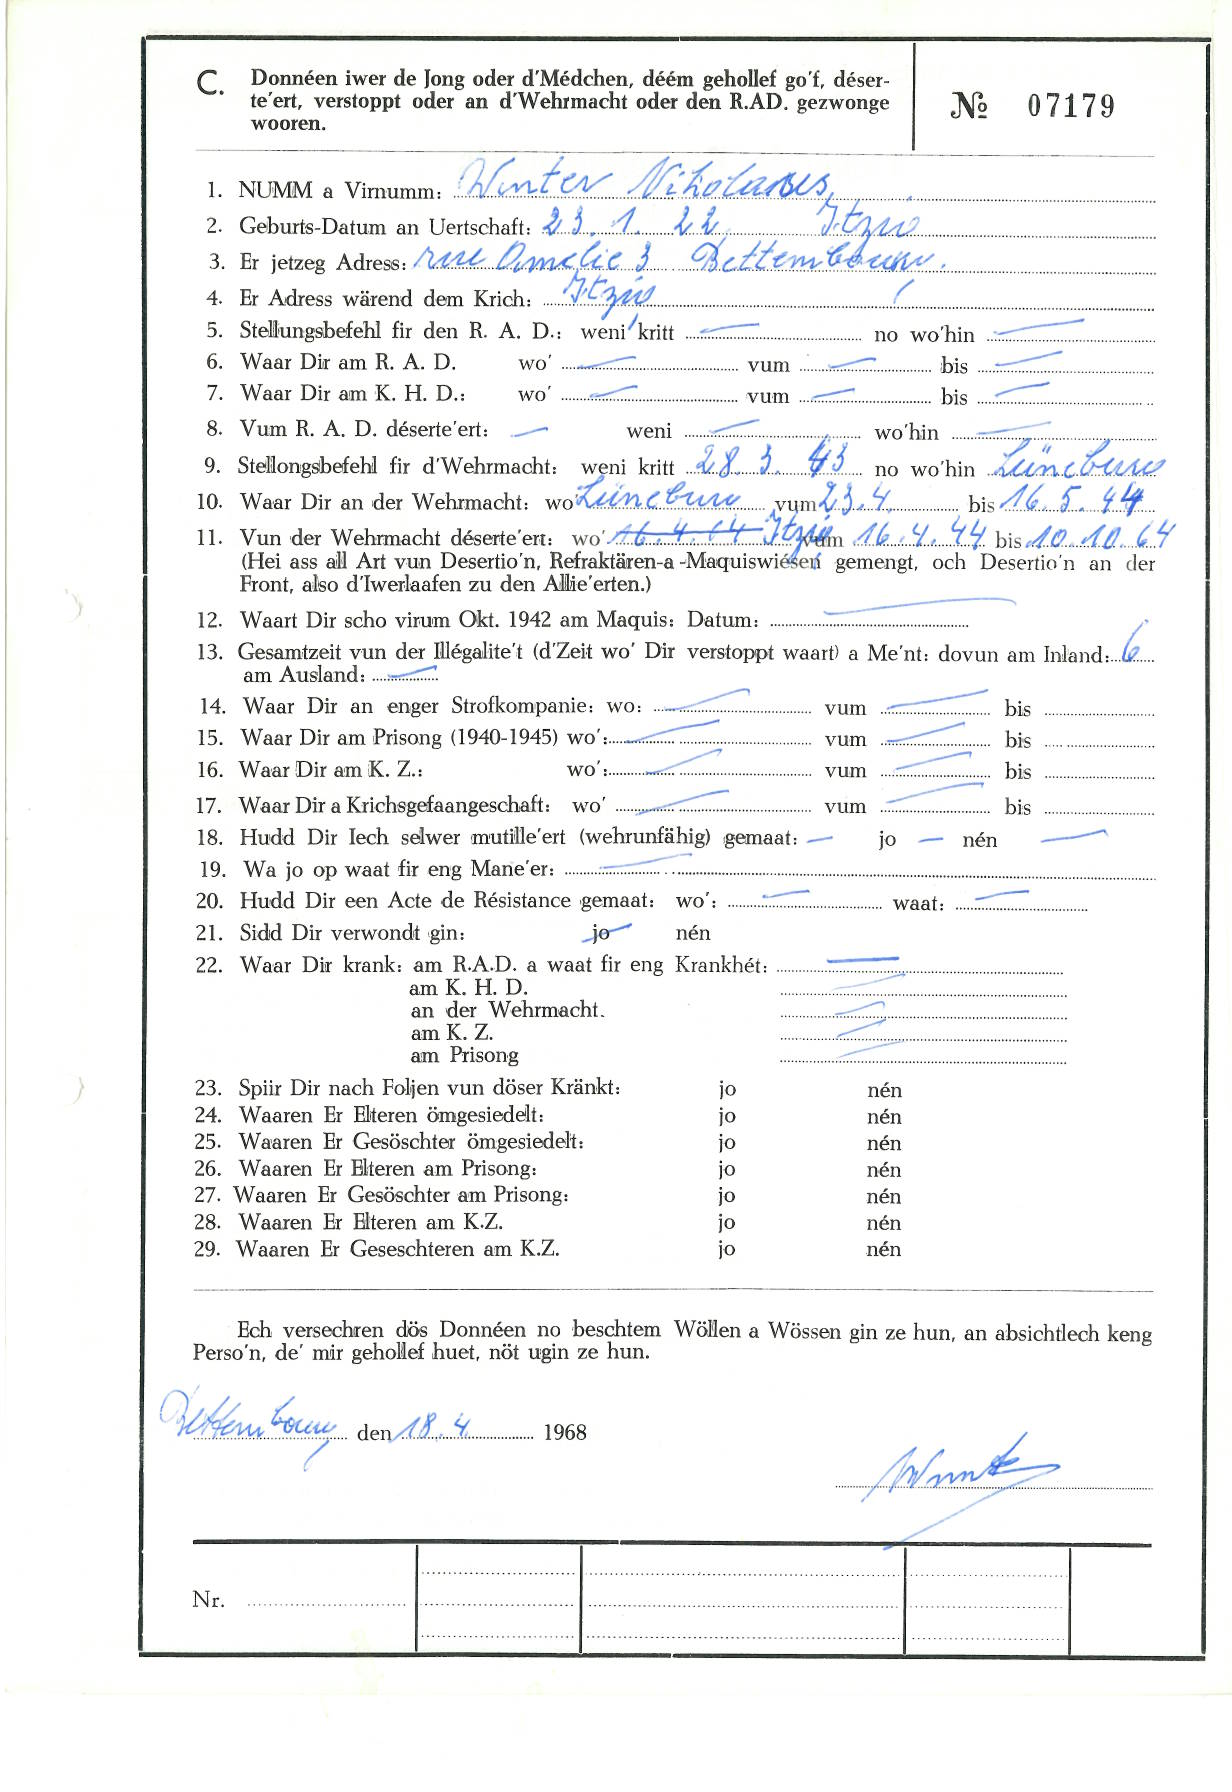 C. Donnéen iwer de Jong oder d'Médchen, déém gehollef go'f, déser-
te'ert, verstoppt oder an d'Wehrmacht oder den R.AD. gezwonge
wooren.
№ 07179
1. NUMM a Virnumm: Winter Nikolaus
2. Geburts-Datum an Uertschaft: 23. 1. 22 Itzig
3. Er jetzeg Adress: rue Amelie 3 Bettembourg.
4. Er Adress wärend dem Krich: Itzig
5. Stellungsbefehl fir den R. A. D.: weni kritt — no wo'hin —
6. Waar Dir am R. A. D. wo' — vum — bis —
7. Waar Dir am K. H. D.: wo' — vum — bis —
8. Vum R. A. D. déserte'ert: — weni — wo'hin —
9. Stellongsbefehl fir d'Wehrmacht: weni kritt 28. 3. 43 no wo'hin Lüneburg
10. Waar Dir an der Wehrmacht: wo' Lüneburg vum 23. 4. bis 16. 5. 44
11. Vun der Wehrmacht déserte'ert: wo' 16. 4. 64 Itzig vum 16. 4. 44 bis 10. 10. 64
(Hei ass all Art vun Desertio'n, Refraktären-a -Maquiswiésen gemengt, och Desertio'n an der
Front, also d'Iwerlaafen zu den Allie'erten.)
12. Waart Dir scho virum Okt. 1942 am Maquis: Datum: —
13. Gesamtzeit vun der Illégalite't (d'Zeit wo' Dir verstoppt waart) a Me'nt: dovun am Inland: 6
am Ausland: —
14. Waar Dir an enger Strofkompanie: wo: — vum — bis
15. Waar Dir am Prisong (1940-1945) wo': — vum — bis
16. Waar Dir am K. Z.: wo': — vum — bis
17. Waar Dir a Krichsgefaangeschaft: wo' — vum — bis
18. Hudd Dir Iech selwer mutille'ert (wehrunfähig) gemaat: — jo — nén —
19. Wa jo op waat fir eng Mane'er: —
20. Hudd Dir een Acte de Résistance gemaat: wo': — waat: —
21. Sidd Dir verwondt gin: jo nén
22. Waar Dir krank: am R.A.D. a waat fir eng Krankhét: —
am K. H. D. —
an der Wehrmacht. —
am K. Z. —
am Prisong —
23. Spiir Dir nach Foljen vun döser Kränkt: jo nén
24. Waaren Er Elteren ömgesiedelt: jo nén
25. Waaren Er Gesöschter ömgesiedelt: jo nén
26. Waaren Er Elteren am Prisong: jo nén
27. Waaren Er Gesöschter am Prisong: jo nén
28. Waaren Er Elteren am K.Z. jo nén
29. Waaren Er Geseschteren am K.Z. jo nén
Ech versechren dös Donnéen no beschtem Wöllen a Wössen gin ze hun, an absichtlech keng
Perso'n, de' mir gehollef huet, nöt ugin ze hun.
Bettembourg den 18. 4. 1968
Nr.